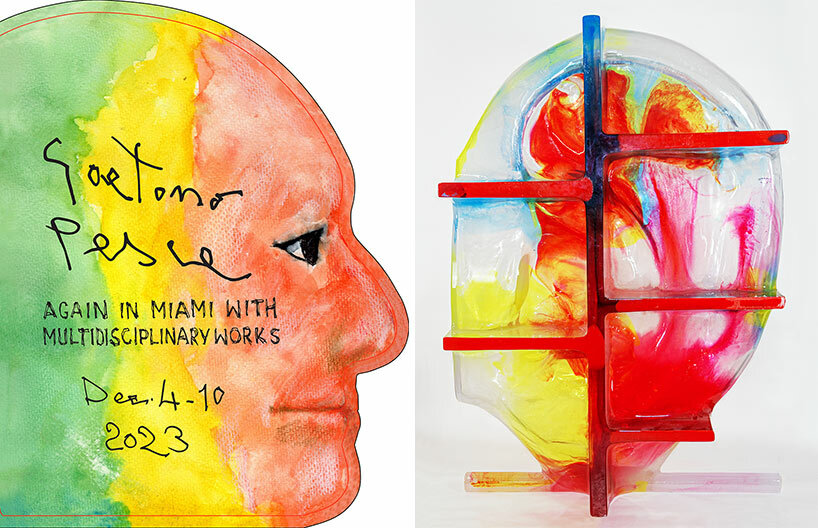 Gaetano
Pesce
AGAIN IN MIAMI WITH
MULTIDISCIPLINARY WORKS
Dec. 4-10
2023